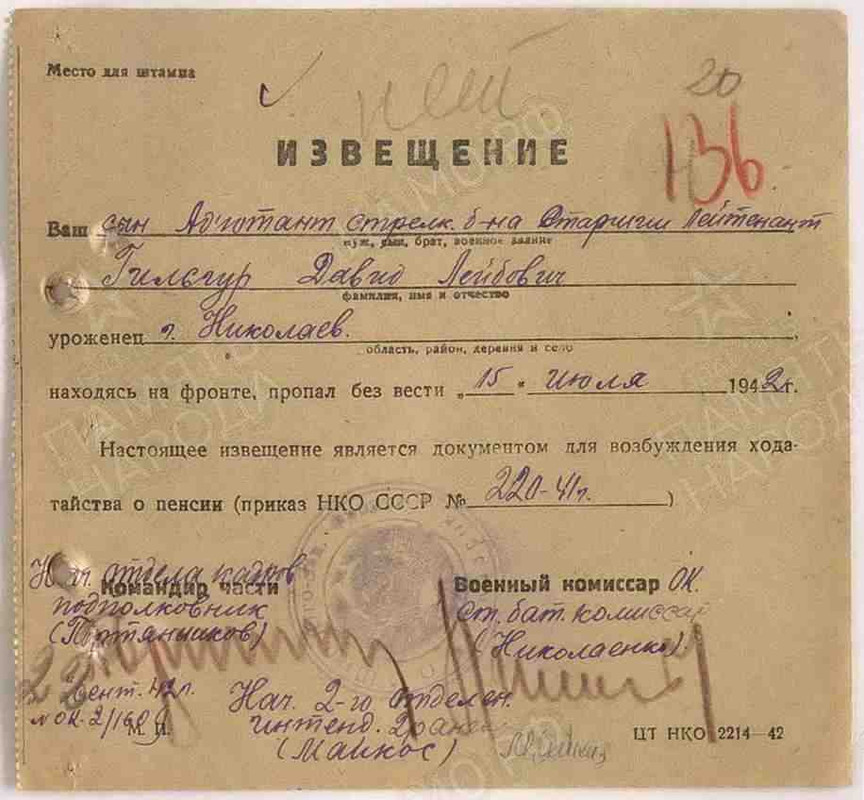 Место для штампа
нет
20
136
ИЗВЕЩЕНИЕ
Ваш сын Ад'ютант стрелк. б-на Старший Лейтенант
муж, сын, брат, военное звание
Гильгур Давид Лейбович
фамилия, имя и отчество
уроженец г. Николаев.
область, район, деревня и село
находясь на фронте, пропал без вести „15" июля 1942г.
Настоящее извещение является документом для возбуждения хода-
тайства о пенсии (приказ НКО СССР № 220-41г.)
Нач. отдела кадров
Командир части
Военный комиссар ОК.
подполковник
ст. бат. комиссар
(Николаенко)
22 сент. 42г.
Нач. 2-го отделен.
М. П.
интенд. 2 ранга
(Майкос)
ЦТ НКО 2214—42
ПАМЯТЬ
НАРОДА